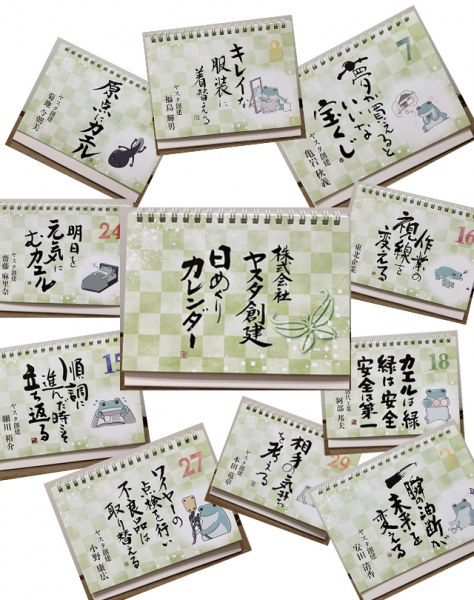 原点にカエル
ヤスタ創建
菊地 今朝美
8
キレイな
服装に
着替える
ヤスタ創建
福島 輝男
7
夢が買えると
いいな
宝くじ
ヤスタ創建
亀岩 秋義
24
明日を
元気に
むカエル
ヤスタ創建
齋藤 麻里奈
株式会社
ヤスタ創建
日めくり
カレンダー
16
作業の
視線を
変える
東北企業
15
順調に
進んだ時こそ
立ち返る
ヤスタ創建
細川 裕介
18
カエルは緑
緑は安全
安全は第一
阿部 邦夫
27
ワイヤーの
点検を行い
不良品は
取り替える
ヤスタ創建
小野 康広
29
相手の気持ち
を考える
ヤスタ創建
本田
2
一瞬の油断が
未来を
変える
ヤスタ創建
安田 清香